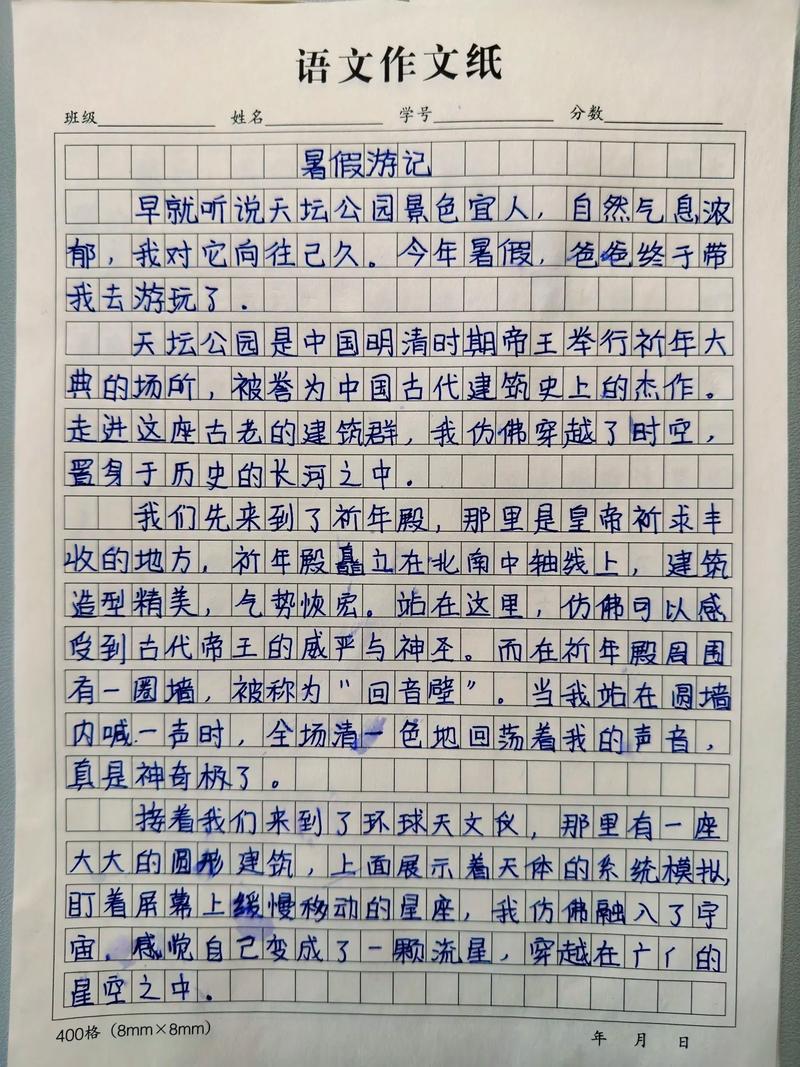 语文作文纸
班级 姓名 学号 分数
暑假游记
早就听说天坛公园景色宜人，自然气息浓
郁，我对它向往己久。今年暑假，爸爸终于带
我去游玩了.
天坛公园是中国明清时期帝王举行祈年大
典的场所，被誉为中国古代建筑史上的杰作。
走进这座古老的建筑群，我仿佛穿越了时空，
置身于历史的长河之中.
我们先来到了祈年殿，那里是皇帝祈求丰
收的地方，祈年殿矗立在北南中轴线上，建筑
造型精美，气势恢宏。站在这里，仿佛可以感
受到古代帝王的威严与神圣。而在祈年殿周围
有一圈墙，被称为“回音壁”。当我站在圆墙
内喊一声时，全场清一色地回荡着我的声音，
真是神奇极了。
接着我们来到了环球天文仪，那里有一座
大大的圆形建筑，上面展示着天体的系统模拟，
盯着屏幕上缓慢移动的星座，我仿佛融入了宇
宙.感觉自己变成了一颗流星，穿越在广的
星空之中.
400格（8mm×8mm） 年 月 日